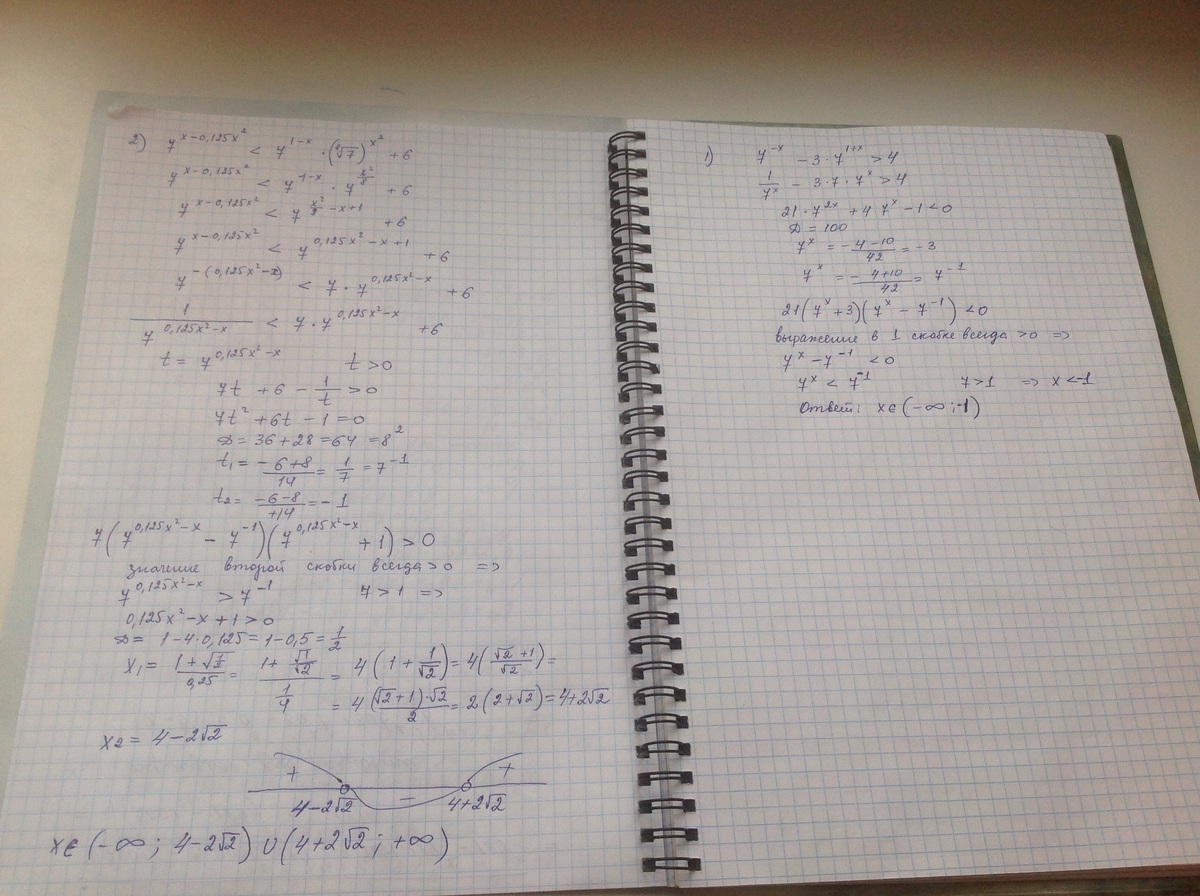 2) 7^(x-0,125x²) < 7^(1-x) · (⁸√7)^(x²) + 6
7^(x-0,125x²) < 7^(1-x) · 7^(x²/8) + 6
7^(x-0,125x²) < 7^(x²/8 - x + 1) + 6
7^(x-0,125x²) < 7^(0,125x² - x + 1) + 6
7^(-(0,125x²-x)) < 7 · 7^(0,125x²-x) + 6
1/7^(0,125x²-x) < 7 · 7^(0,125x²-x) + 6
t = 7^(0,125x²-x) t > 0
7t + 6 - 1/t > 0
7t² + 6t - 1 = 0
D = 36 + 28 = 64 = 8²
t₁ = (-6+8)/14 = 1/7 = 7^(-1)
t₂ = (-6-8)/+14 = -1
7(7^(0,125x²-x) - 7^(-1))(7^(0,125x²-x) + 1) > 0
значение второй скобки всегда > 0 =>
7^(0,125x²-x) > 7^(-1) 7 > 1 =>
0,125x² - x + 1 > 0
D = 1 - 4·0,125 = 1 - 0,5 = 1/2
= 4(1 + 1/√2) = 4((√2+1)/√2) =
= 4((√2+1)·√2)/2 = 2(2+√2) = 4+2√2
x₂ = 4 - 2√2
+ - +
4-2√2 4+2√2
x ∈ (-∞; 4-2√2) ∪ (4+2√2; +∞)
1) 7^(-x) - 3·7^(1+x) > 4
1/7^x - 3·7·7^x > 4
21·7^(2x) + 4 7^x - 1 < 0
D = 100
7^x = -(4-10)/42 = -3
7^x = -(4+10)/42 = 7^(-1)
21(7^x + 3)(7^x - 7^(-1)) < 0
выражение в 1 скобке всегда > 0 =>
7^x - 7^(-1) < 0
7^x < 7^(-1) 7 > 1 => x < -1
Ответ: x ∈ (-∞; -1)